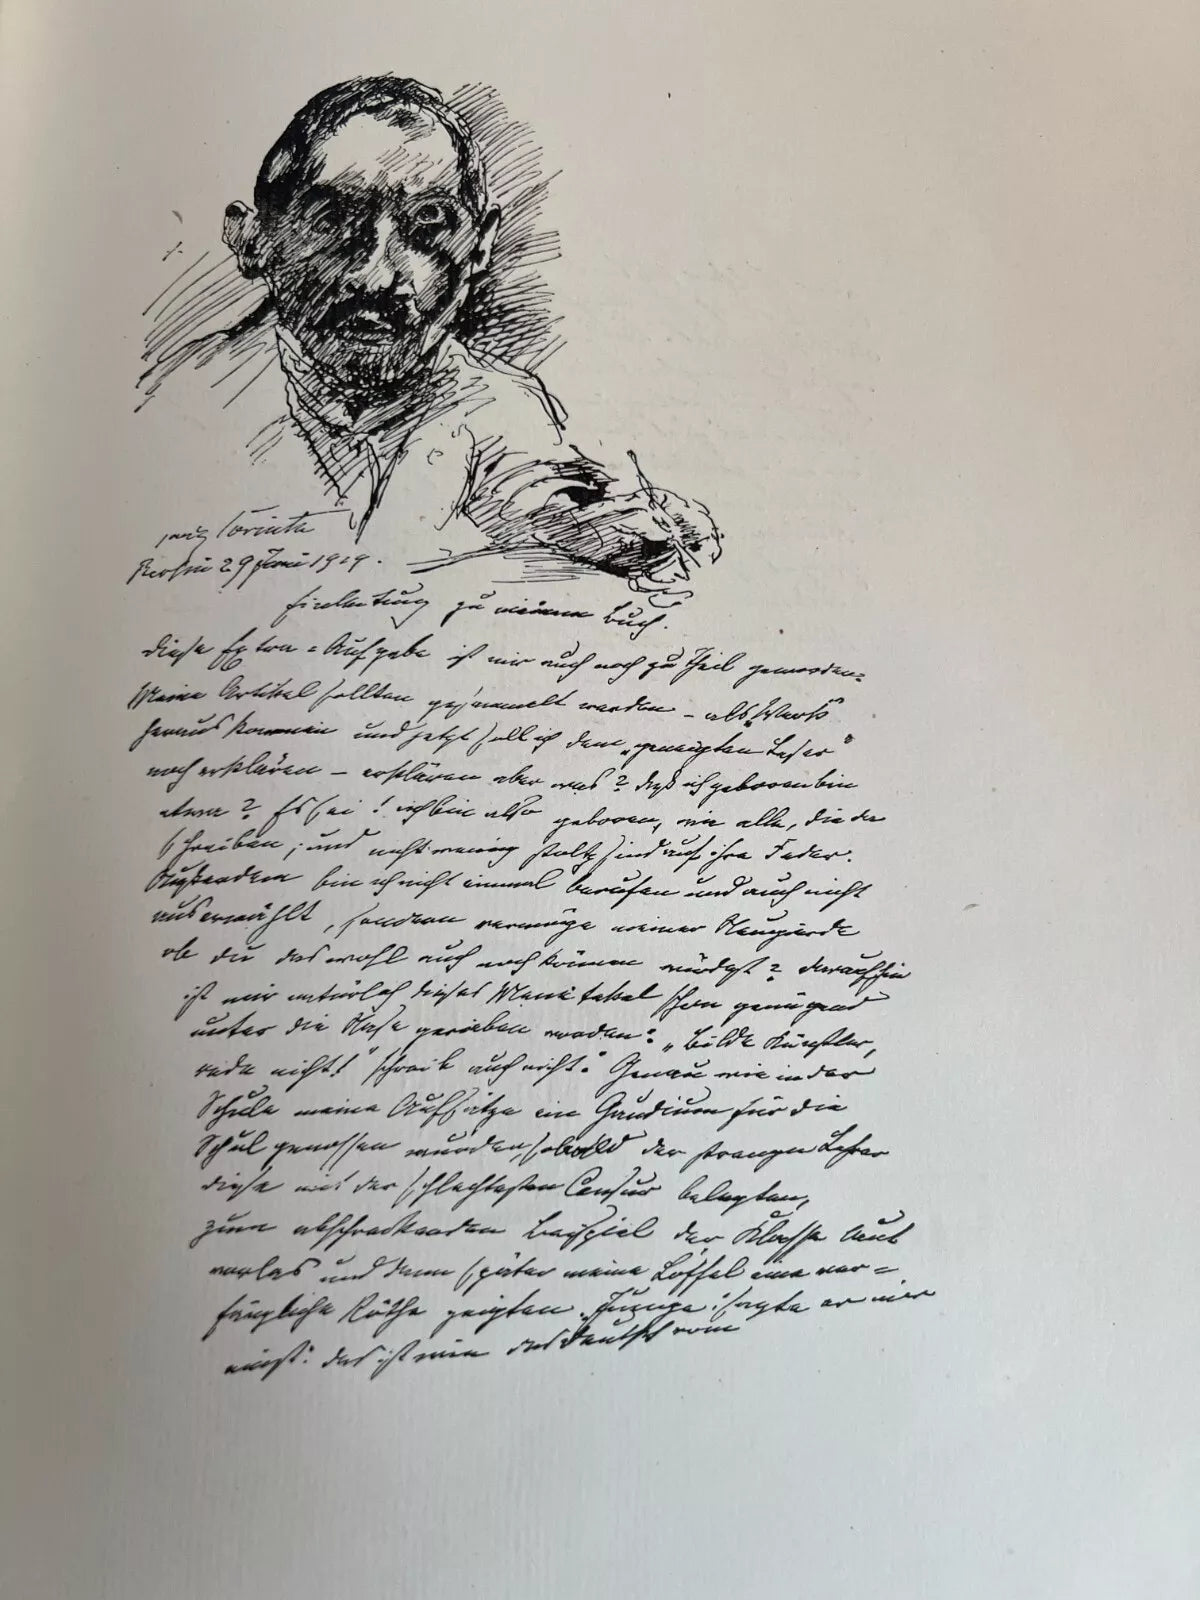 Lovis Corinth
Berlin 29 Juni 1919.
Einleitung zu meinem Buch.
Diese Extra=Aufgabe ist mir auch noch zu Theil geworden:
Meine Artikel sollten gesammelt werden – als „Werk"
heraus kommen und jetzt soll ich dem „geneigten Leser"
noch erklären – erklären aber was? daß ich geboren bin
etwa? Es sei! ich bin also geboren, wie alle, die da
schreiben; und nicht wenig stolz sind auf ihre Feder.
Außerdem bin ich nicht einmal berufen und auch nicht
auserwählt, sondern vermöge meiner Neugierde
ob du das wohl auch noch können würdest? daraufhin
ist mir natürlich dieses Mene tekel schon genügend
unter die Nase gerieben worden: „Bilde Künstler,
rede nicht!" schreib auch nicht. Genau wie in der
Schule meine Aufsätze ein Gaudium für die
Schulgenossen wurden, sobald der strenge Lehrer
diese mit der schlechtesten Censur belegten,
zum abschreckenden Beispiel der Klasse laut
vorlas und dann später meine Löffel eine ver=
fängliche Röthe zeigten. „Junge" sagte er mir
einst: das ist wie das deutsch vom